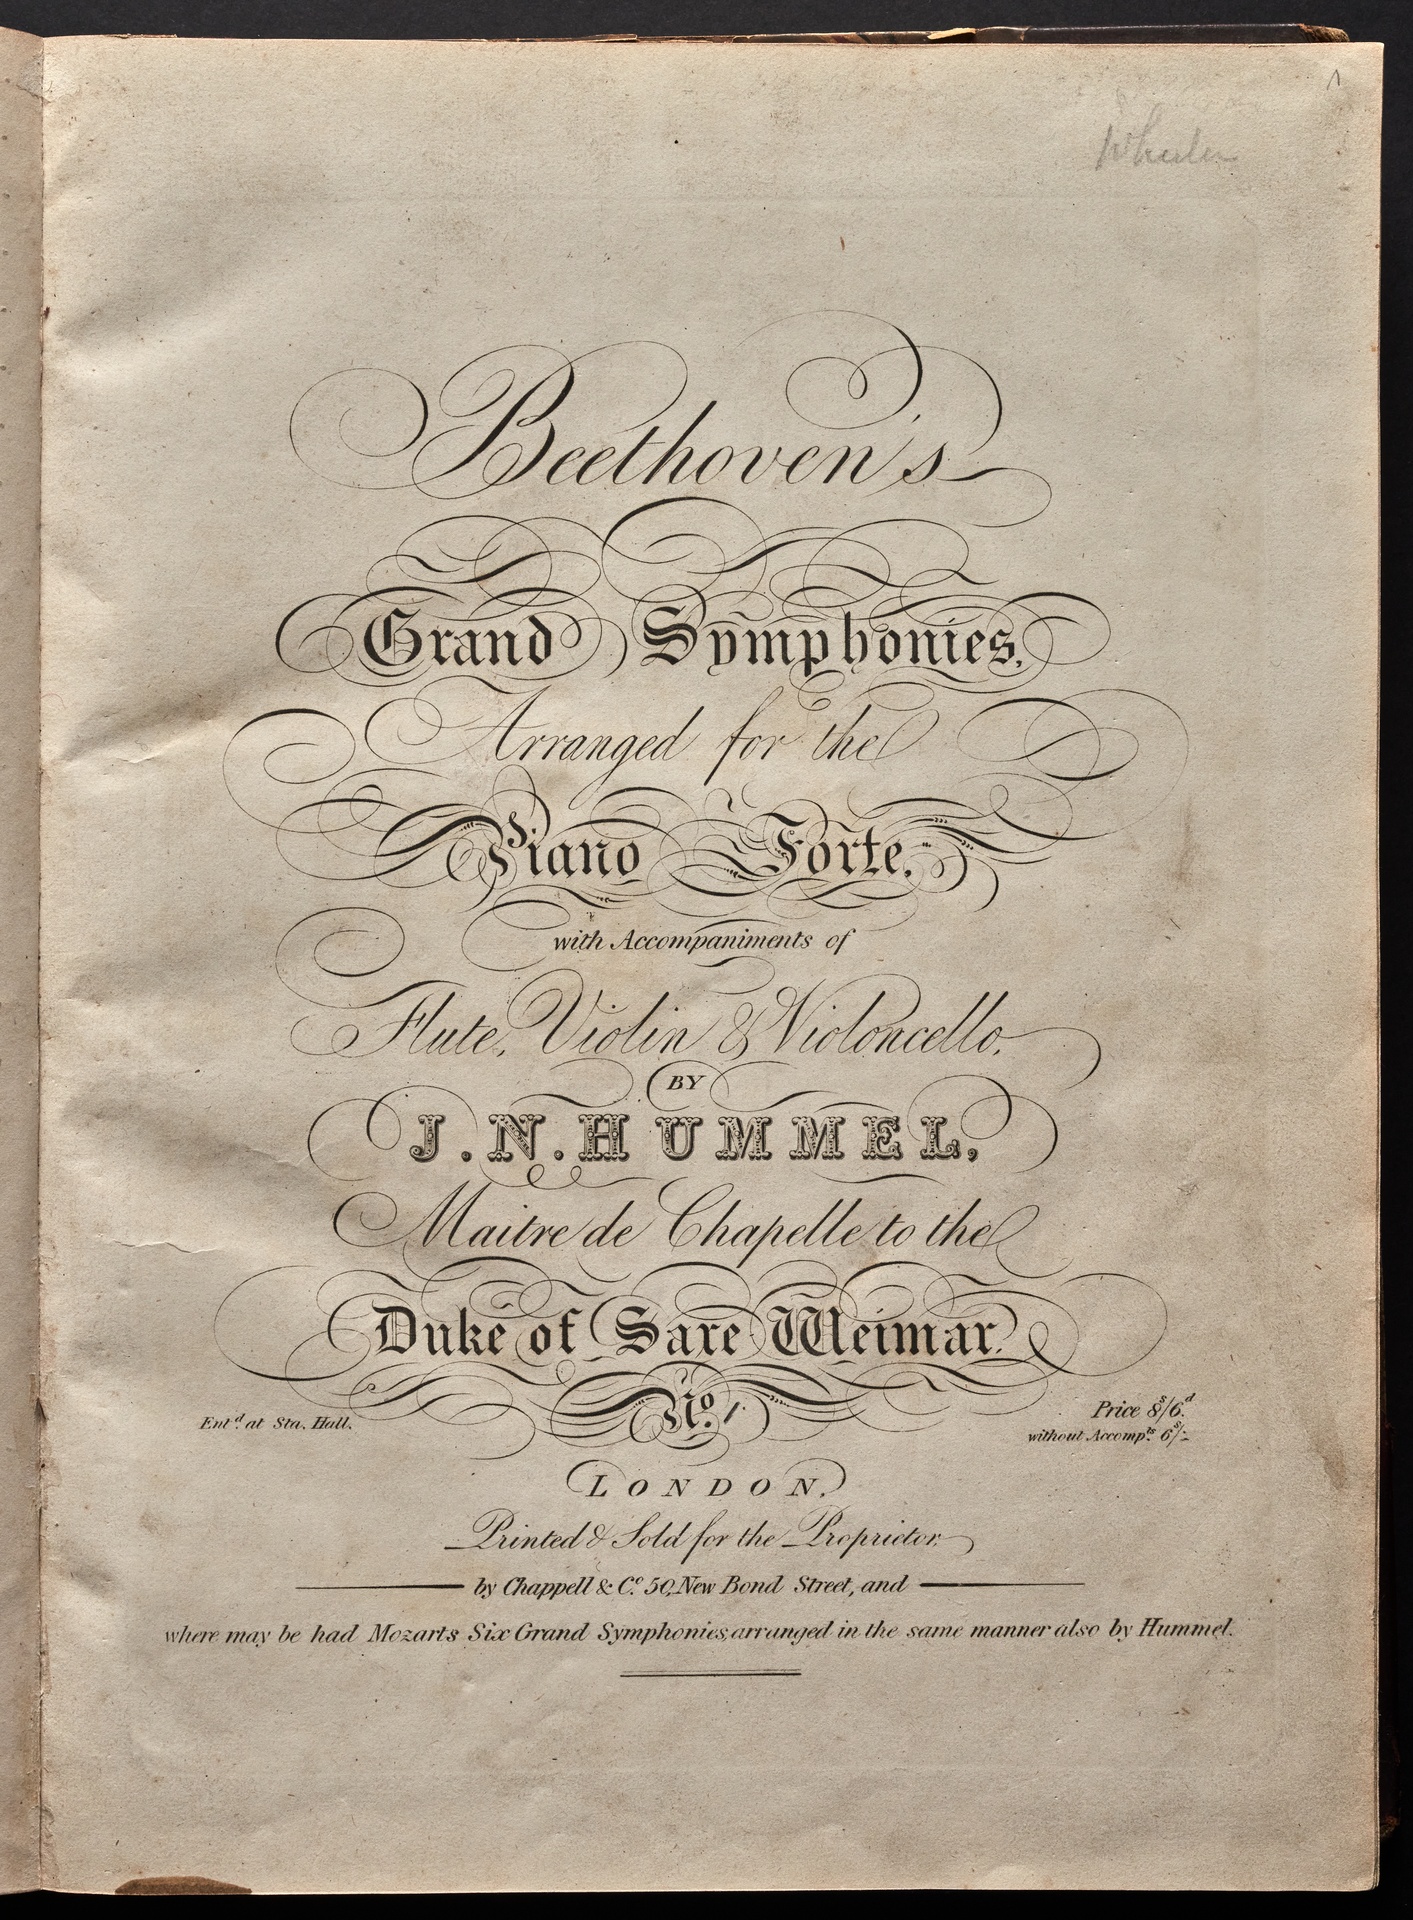 1
Beethoven's
Grand Symphonies,
Arranged for the
Piano Forte,
with Accompaniments of
Flute, Violin & Violoncello,
BY
J. N. HUMMEL,
Maitre de Chapelle to the
Duke of Saxe Weimar.
No. 1
Entd. at Sta. Hall.
Price 8s/6d.
without Accompts. 6s/-
LONDON,
Printed & Sold for the Proprietor,
by Chappell & Co. 50, New Bond Street, and
where may be had Mozarts Six Grand Symphonies, arranged in the same manner also by Hummel.